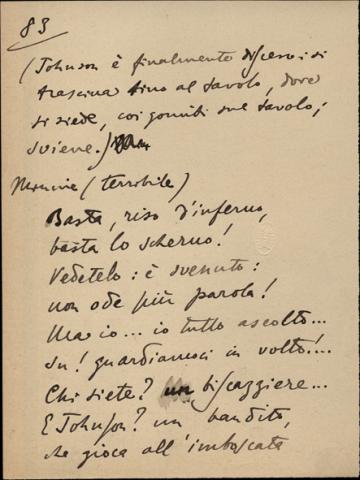 83
(Johnson è finalmente disceso: si
trascina fino al tavolo, dove
si siede, coi gomiti sul tavolo;
sviene.)
Minnie (terribile)
Basta, riso d'inferno,
basta lo scherno!
Vedetelo: è svenuto:
non ode più parola!
Ma io... io tutto ascolto...
Su! guardiamoci in volto!...
Chi siete? un biscazziere...
E Johnson? un bandito,
che gioca all'imboscata